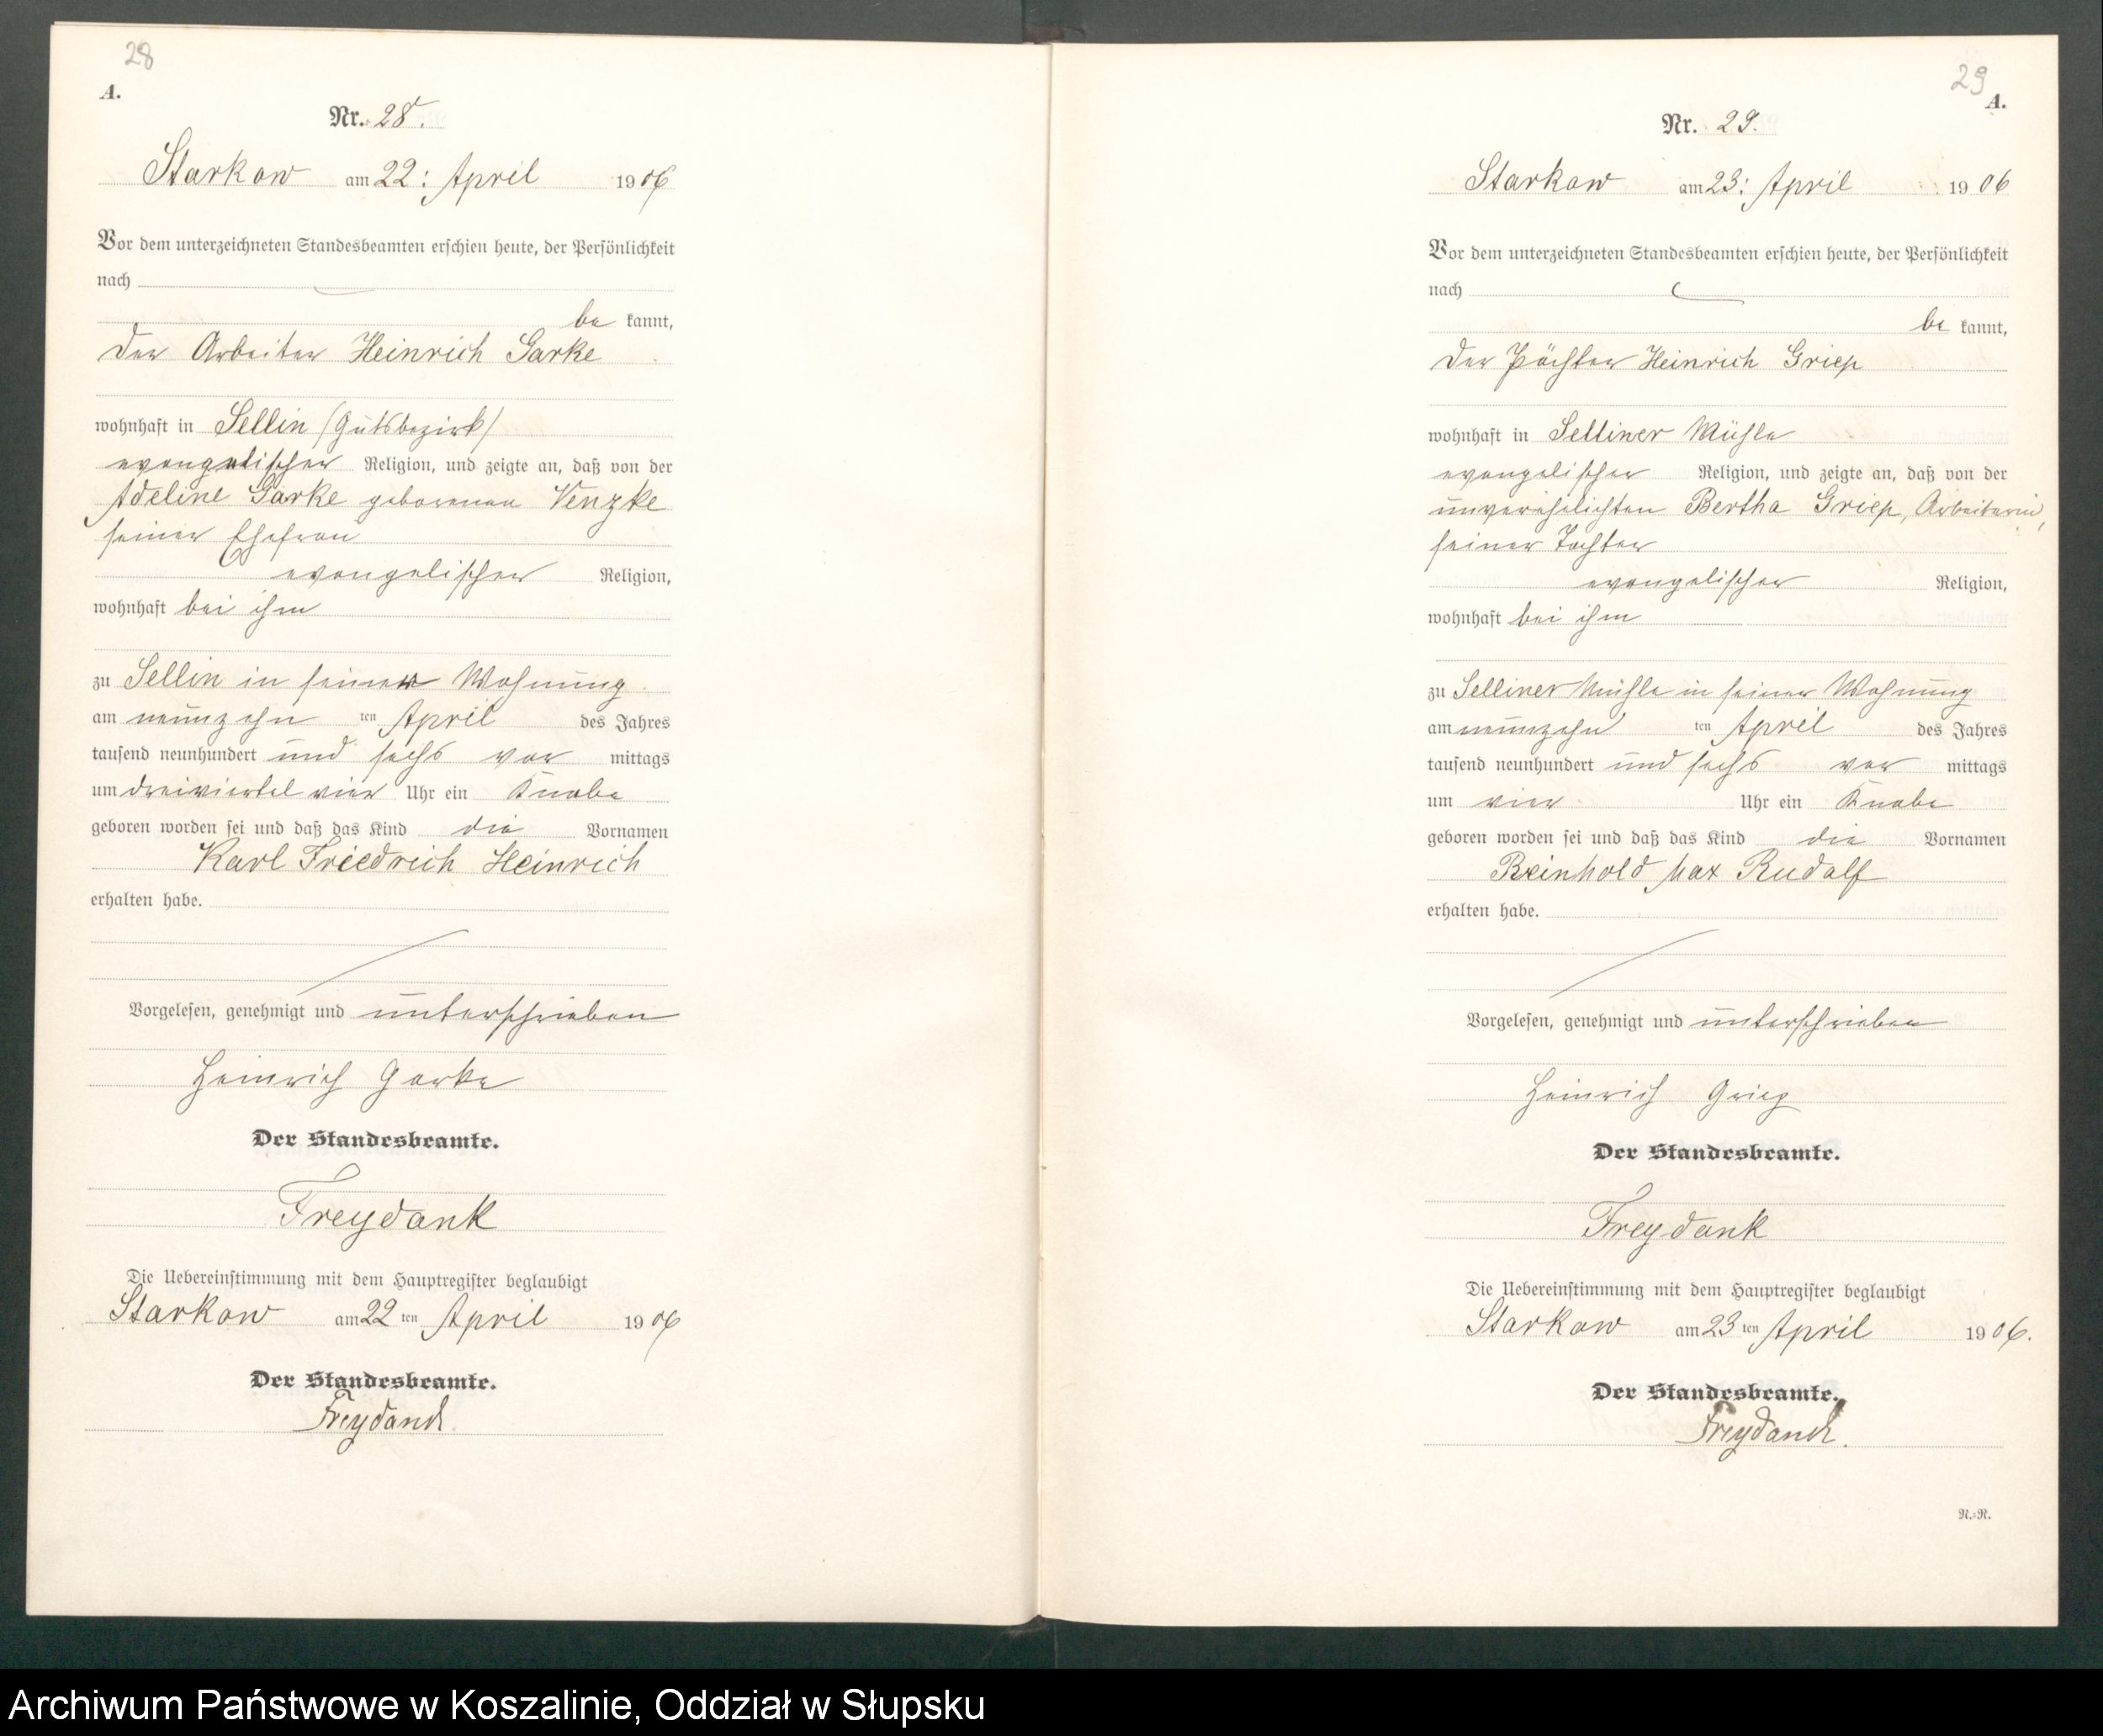 28
A.
Nr. 28.
Starkow am 22: April 1906
Vor dem unterzeichneten Standesbeamten erschien heute, der Persönlichkeit
nach
be kannt,
der Arbeiter Heinrich Garke
wohnhaft in Sellin (Gutsbezirk)
evangelischer Religion, und zeigte an, daß von der
Adeline Garke geborenen Venzke
seiner Ehefrau
evangelischer Religion,
wohnhaft bei ihm
zu Sellin in seiner Wohnung
am neunzehn ten April des Jahres
tausend neunhundert und sechs vor mittags
um dreiviertel vier Uhr ein Knabe
geboren worden sei und daß das Kind die Vornamen
Karl Friedrich Heinrich
erhalten habe.
Vorgelesen, genehmigt und unterschrieben
Heinrich Garke
Der Standesbeamte.
Freydank
Die Uebereinstimmung mit dem Hauptregister beglaubigt
Starkow am 22 ten April 1906
Der Standesbeamte.
Freydank.
29
A.
Nr. 29.
Starkow am 23: April 1906
Vor dem unterzeichneten Standesbeamten erschien heute, der Persönlichkeit
nach
be kannt,
der Pächter Heinrich Griep
wohnhaft in Selliner Mühle
evangelischer Religion, und zeigte an, daß von der
unverehelichten Bertha Griep, Arbeiterin,
seiner Tochter
evangelischer Religion,
wohnhaft bei ihm
zu Selliner Mühle in seiner Wohnung
am neunzehn ten April des Jahres
tausend neunhundert und sechs vor mittags
um vier Uhr ein Knabe
geboren worden sei und daß das Kind die Vornamen
Reinhold Max Rudolf
erhalten habe.
Vorgelesen, genehmigt und unterschrieben
Heinrich Griep
Der Standesbeamte.
Freydank
Die Uebereinstimmung mit dem Hauptregister beglaubigt
Starkow am 23 ten April 1906.
Der Standesbeamte.
Freydank.
R.-R.
Archiwum Państwowe w Koszalinie, Oddział w Słupsku